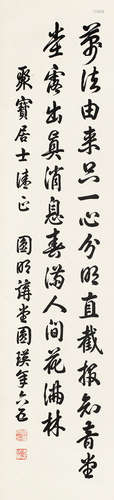 萬法由来只一心分明直截报知音堂
堂露出真消息春满人间花满林
聚寳居士清正 圆明講堂圆瑛年六五